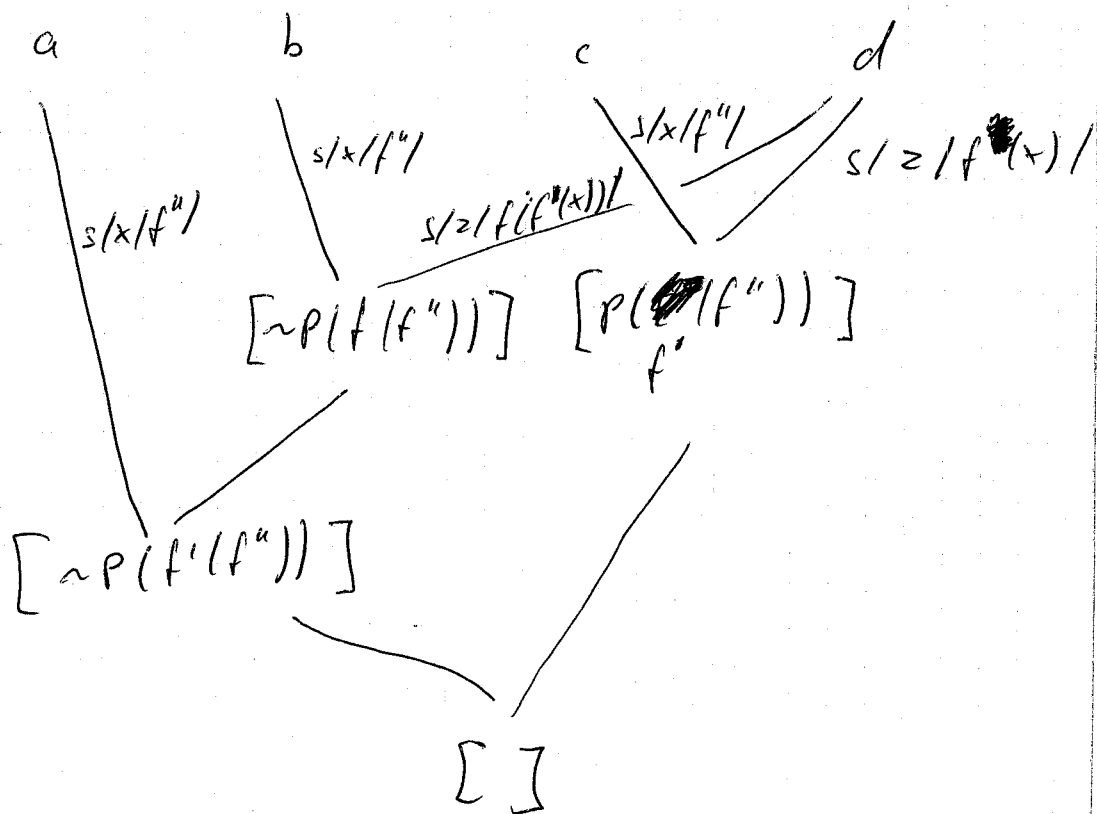 a b c d
s/x/f"/ s/x/f"/ s/x/f"/ s/z/f (x)/
s/z/f(f"(x))/
[~P(f(f"))] [P( (f"))]
f'
[~P(f'(f"))]
[ ]